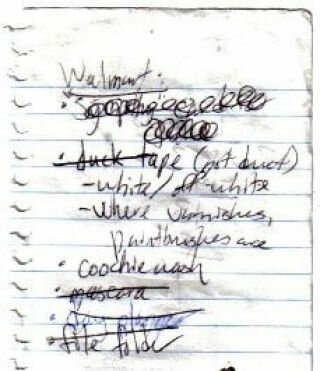 Walmart.
• duck tape (not duct)
- white/off-white
- where varnishes,
paintbrushes are
• coochie wash
• mascara
• file folder